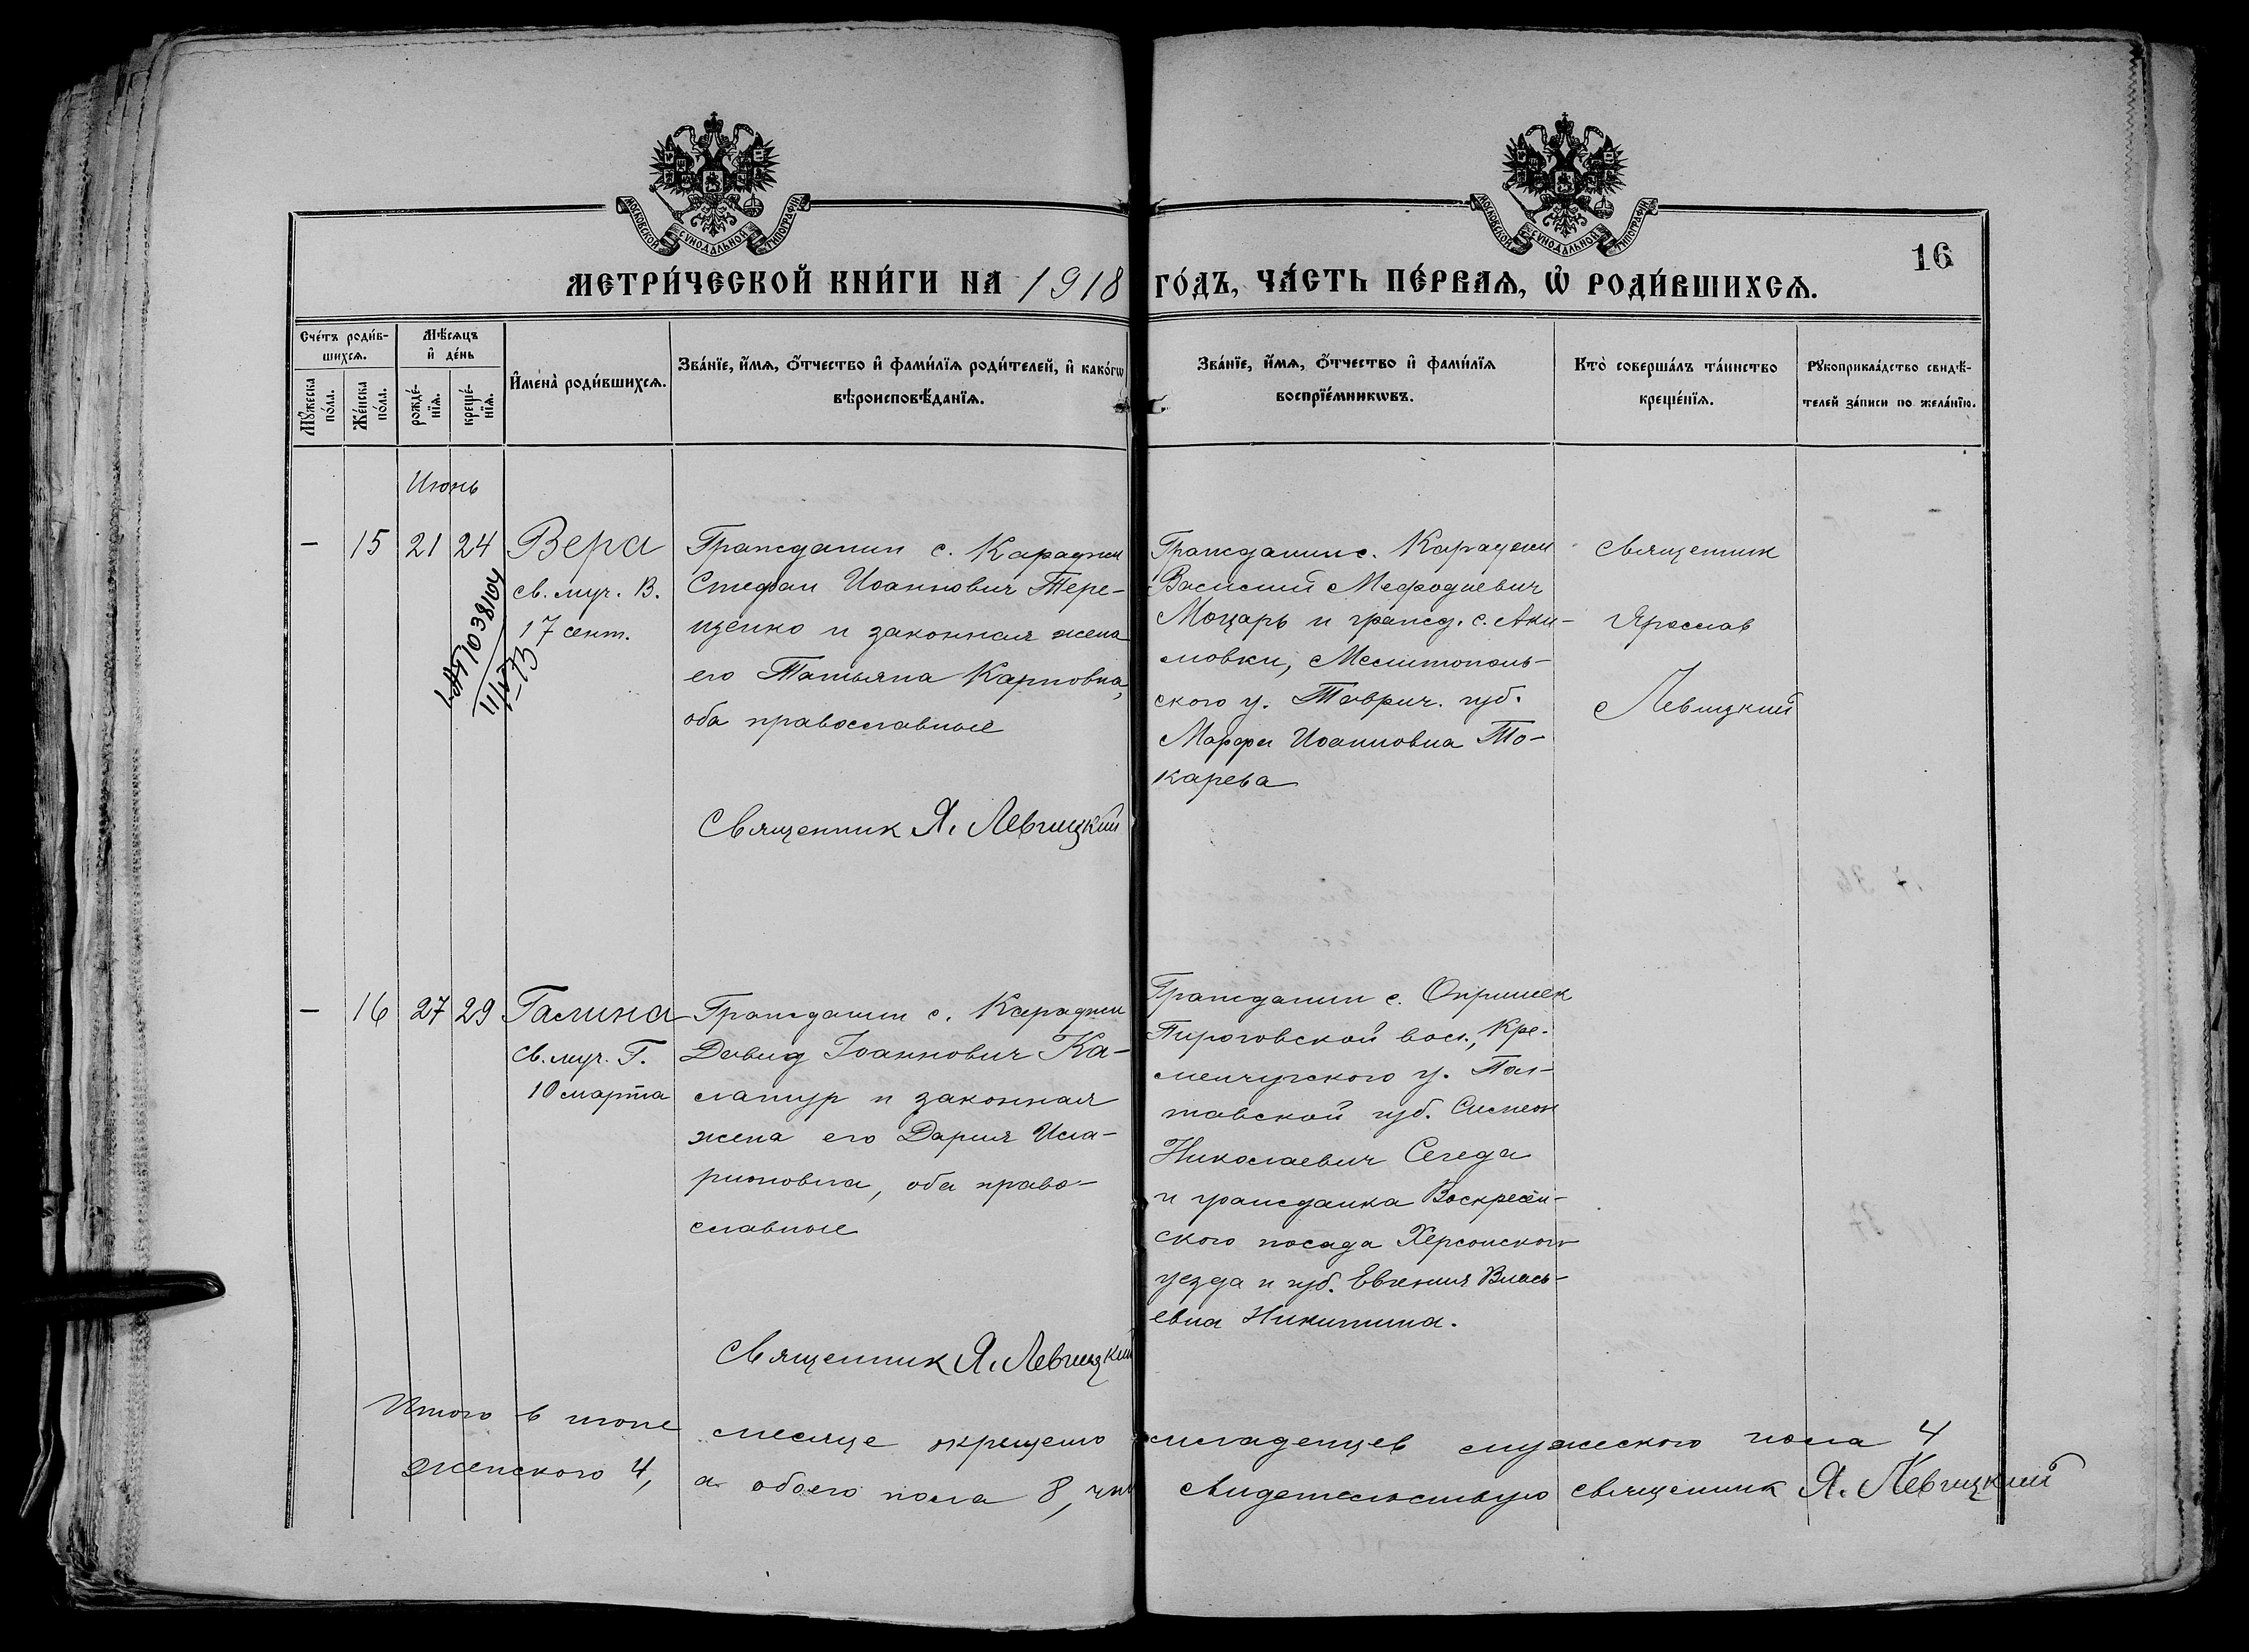 МОСКОВСКОЙ СУНОДАЛЬНОЙ ТИПОГРАФІИ
МОСКОВСКОЙ СУНОДАЛЬНОЙ ТИПОГРАФІИ
16
МЕТРИ́ЧЕСКОЙ КНИ́ГИ НА 1918 ГО́ДЪ, ЧА́СТЬ ПЕ́РВАѦ, Ѡ҆ РОДИ́ВШИХСѦ.
Сче́тъ роди́в-
шихсѧ.
Мꙋжеска по́ла.
Же́нска по́ла.
Мѣ́сѧцъ
и҆ де́нь
рожде́-
нїѧ.
креще́-
нїѧ.
И҆мена̀ роди́вшихсѧ.
Зва́нїе, и҆́мѧ, ѻ҆́тчество и҆ фами́лїѧ роди́телей, и҆ како́гѡ
вѣроисповѣ́данїѧ.
Зва́нїе, и҆́мѧ, ѻ҆́тчество и҆ фами́лїѧ
воспрїе́мникѡвъ.
Кто̀ соверша́лъ та́инство
креще́нїѧ.
Рꙋкоприкла́дство свидѣ́-
телей за́писи по жела́нїю.
Июнь
— 15 21 24 Вера
св. муч. В.
17 сент.
Гражданин с. Караджи
Стефан Иоаннович Тере-
щенко и законная жена
его Татьяна Карповна,
оба православные
Священник Я. Левицкий
Гражданин с. Караджи
Василий Мефодиевич
Моцарь и гражд. с. Аки-
мовки, Мелитополь-
ского у. Таврич. губ.
Марфа Иоанновна То-
карева
Священник
Ярослав
Левицкий
— 16 27 29 Галина
св. муч. Г.
10 марта
Гражданин с. Караджи
Давид Іоаннович Ка-
латур и законная
жена его Дария Ила-
рионовна, оба право-
славные
Священник Я. Левицкий
Гражданин с. Опришек
Пироговской вол., Кре-
менчугского у. Пол-
тавской губ. Симеон
Николаевич Сегеда
и гражданка Воскресен-
ского посада Херсонского
уезда и губ. Евгения Влась-
евна Никитина.
Итого в июне месяце окрещено младенцев мужеского пола 4
женского 4, а обоего пола 8, что свидетельствую священник Я. Левицкий